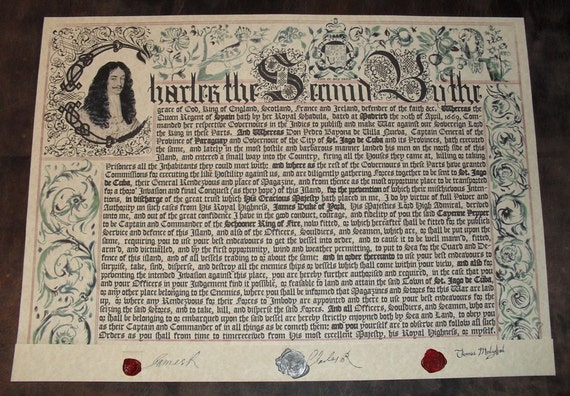 Charles the Second By the
grace of God, King of England, Scotland, France and Ireland, defender of the faith &c. Whereas the
Queen Regent of Spain hath by her Royal Shadula, dated at Madrid the 20th of April, 1669, Com-
manded her respective Governours in the Indies to publish and make War against our Sovereign Lord
the King in these Parts. And Whereas Don Pedro Bayona de Villa Nueva, Captain General of the
Province of Paraguay and Governour of the City of St. Jago de Cuba and its Provinces, hath executed
the same, and lately in the most hostile and barbarous manner landed his men on the north side of this
Island, and entered a small way into the Country, firing all the Houses they came at, killing or taking
Prisoners all the Inhabitants they could meet with; and where as the rest of the Governours in these Parts have granted
Commissions for executing the like Hostility against us, and are diligently gathering Forces together to be sent to St. Jago
de Cuba, their General Rendezvous and place of Magazine, and from thence as the most opportune place to be transported
for a thoro' Invasion and final Conquest (as they hope) of this Island, for the prevention of which their mischievous Inten-
tions, in discharge of the great trust which His Gracious Majesty hath placed in me, I do by virtue of full Power and
Authority on such cases from His Royal Highness, James Duke of York, His Majesties Lord High Admiral, derived
unto me, and out of the great confidence I have in the good conduct, courage, and fidelity of you the said Cayenne Pepper
to be Captain and Commander of the Schooner King of Fire, now fitted, or which hereafter shall be fitted for the publick
Service and defence of this Island, and also of the Officers, Souldiers, and Seamen, which are, or shall be put upon the
same, requiring you to use your best endeavours to get the vessel into order, and to cause it to be well mann'd, fitted,
arm'd, and victualled, and by the first opportunity, wind and weather permitting, to put to Sea for the Guard and De-
fence of this island, and of all vessels trading to or about the same; and in order thereunto to use your best endeavours to
surprize, take, sink, disperse, and destroy all the enemies ships or vessels which shall come within your view, and also for
preventing the intended Invasion against this place, you are hereby further authorised and required, in the case that you
and your Officers in your Judgement find it possible, or feasible to land and attain the said Town of St. Jago de Cuba,
or any other place belonging to the Enemies, where you shall be informed that Magazines and Stores for this War are laid
up, or where any Rendezvous for their Forces to Imbody are appointed and there to use your best endeavours for the
seizing the said Stores, and to take, kill, and disperse the said Forces. And all Officers, Souldiers, and Seamen, who are
or shall be belonging to or embarqued upon the said vessel are hereby strictly enjoyned both by Sea and Land, to obey you
as their Captain and Commander of in all things as be cometh them; and you yourself are to observe and follow all such
Orders as you shall from time to time received from His most excellent Majesty, His Royal Highness, or myself.
James R Charles R Thomas